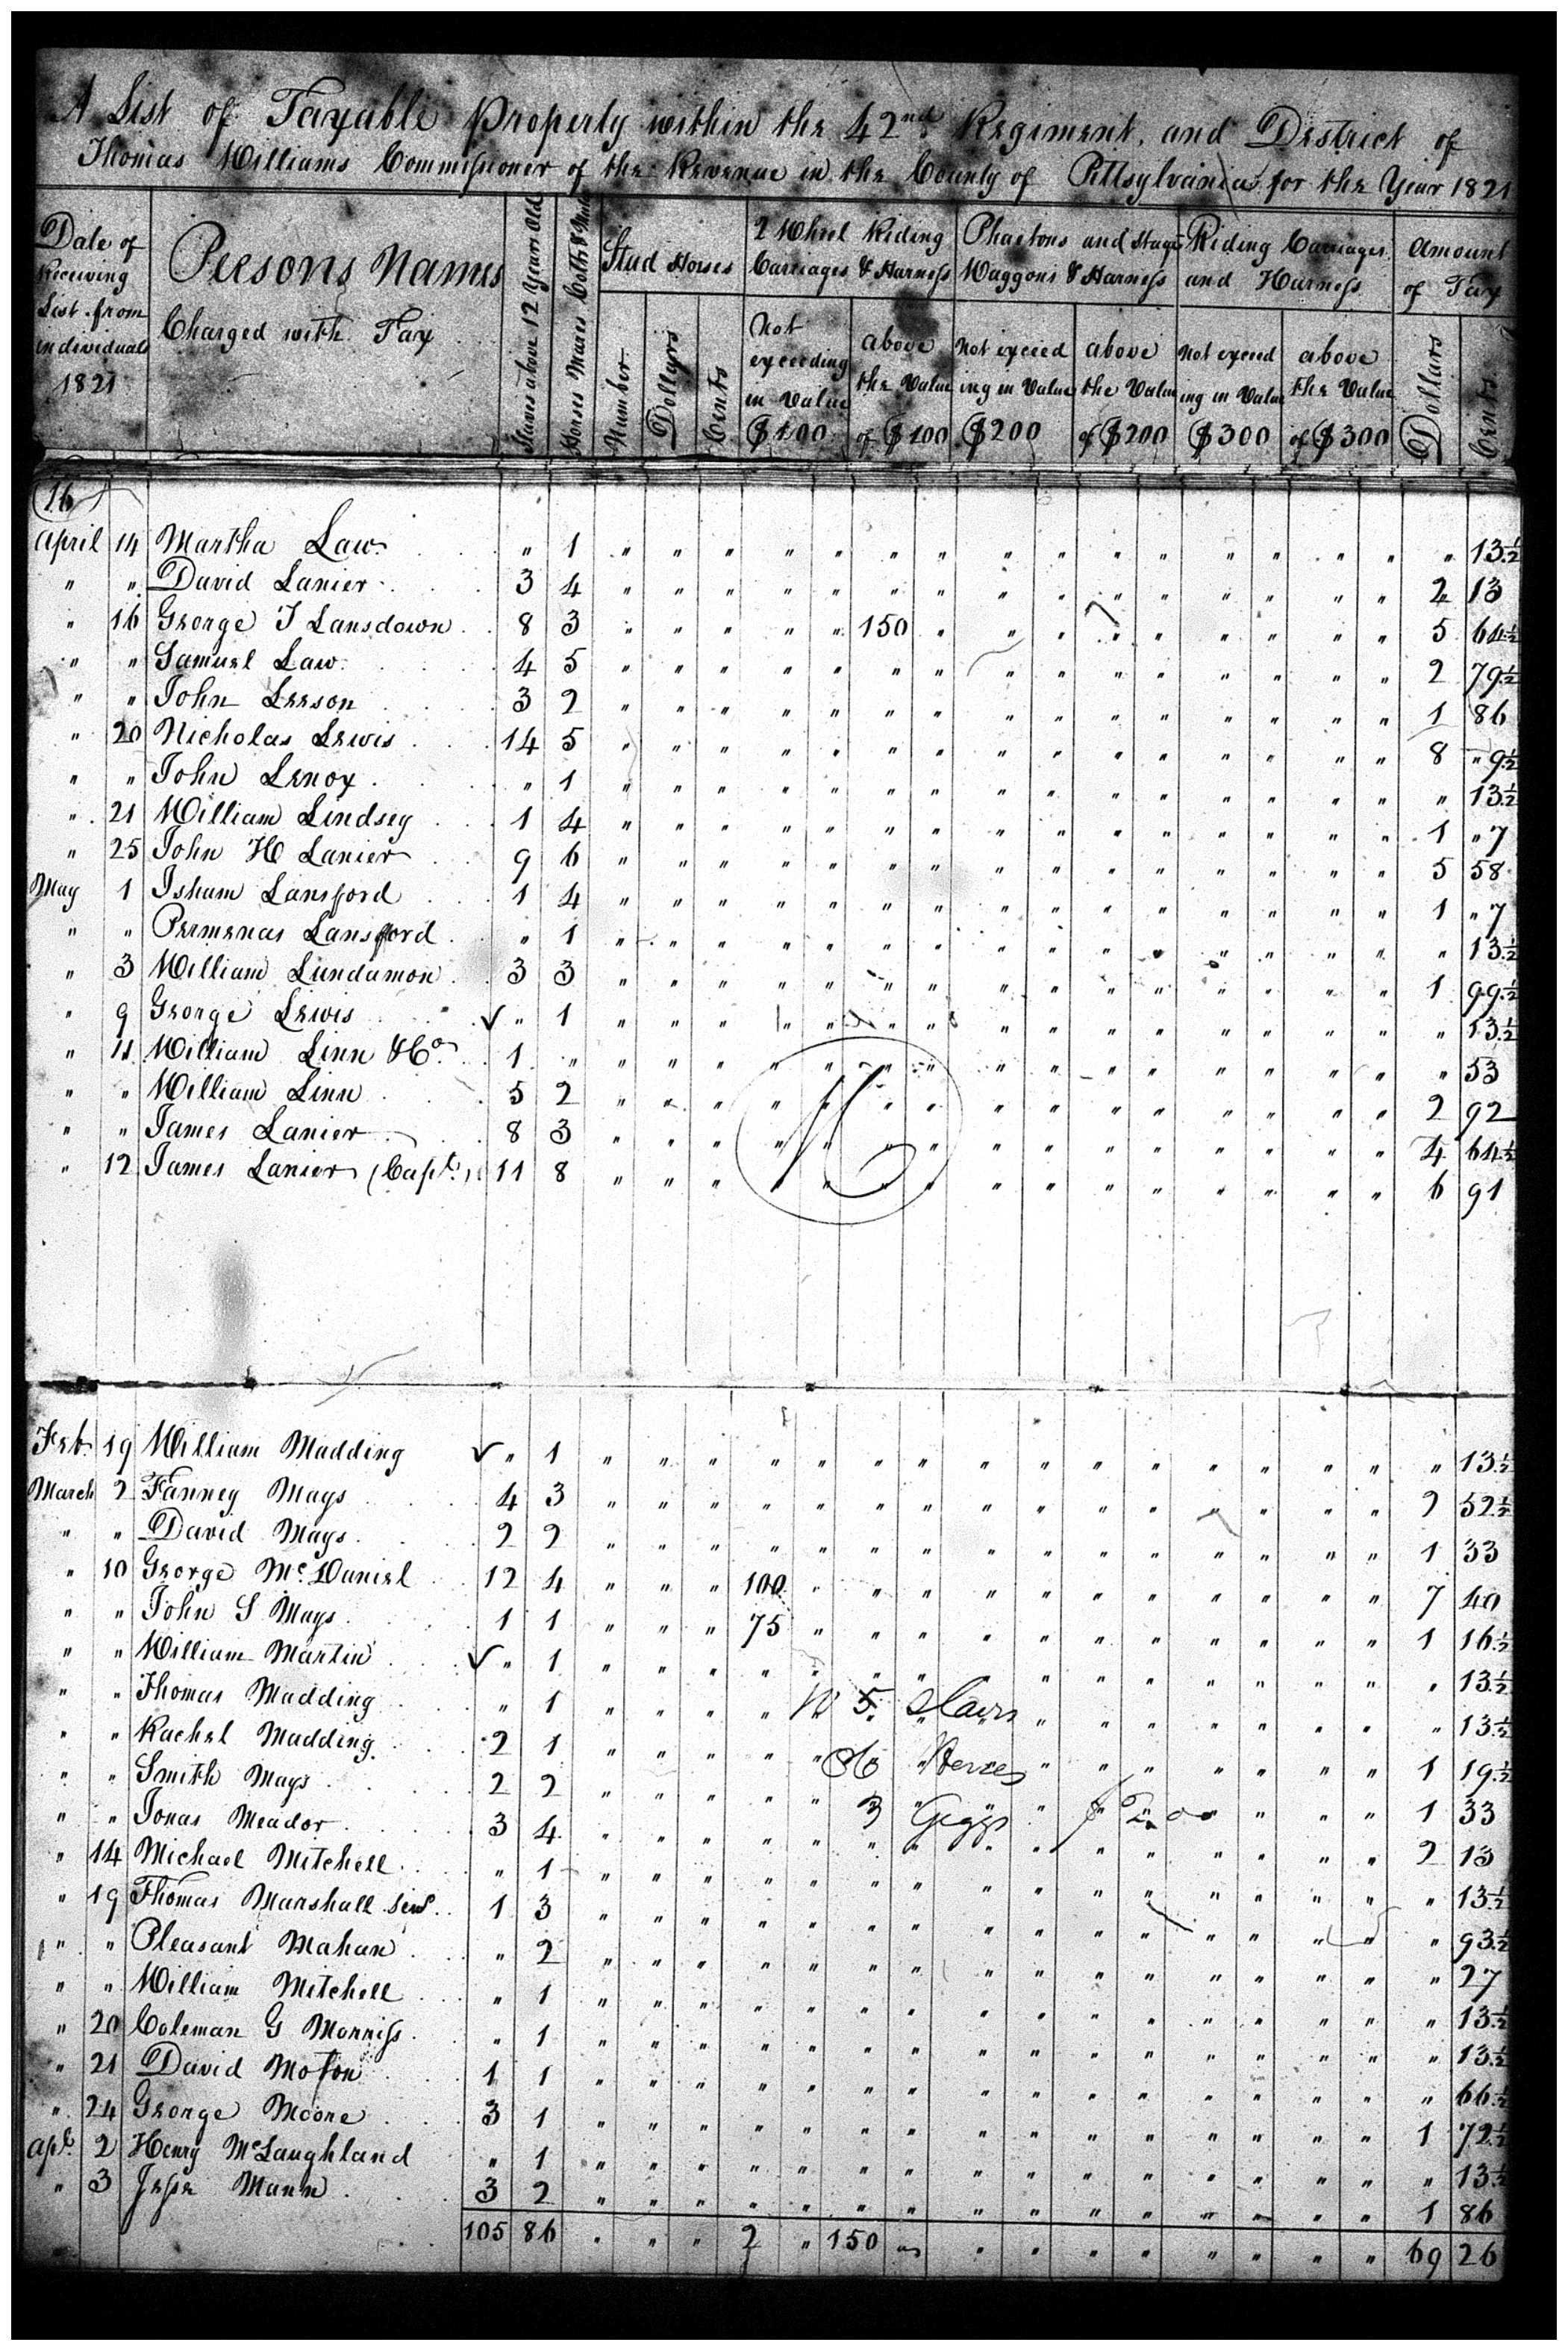 A List of Taxable Property within the 42nd Regiment, and District of
Thomas Williams Commissioner of the Revenue in the County of Pittsylvania for the Year 1821
Date of Receiving List from individuals 1821
Persons Names Charged with Tax
Slaves above 12 Years Old
Horses Mares Colts & Mules
Stud Horses
Number
Dollars
Cents
2 Wheel Riding Carriages & Harness
Not exceeding in Value $100
above the Value of $100
Phaetons and Stage Waggons & Harness
Not exceeding in Value $200
above the Value of $200
Riding Carriages and Harness
Not exceeding in Value $300
above the Value of $300
Amount of Tax
Dollars
Cents
16
April 14 Martha Law " 1 " " " " " " " " " " " " " " " " 13½
" " David Lanier 3 4 " " " " " " " " " " " " " " " 2 13
" 16 George T Lansdown 8 3 " " " " " 150 " " " " " " " " " 5 64½
" " Samuel Law 4 5 " " " " " " " " " " " " " " " 2 79½
" " John Leeson 3 2 " " " " " " " " " " " " " " " 1 86
" 20 Nicholas Lewis 14 5 " " " " " " " " " " " " " " " 8 " 9½
" " John Lenox " 1 " " " " " " " " " " " " " " " " 13½
" 21 William Lindsey 1 4 " " " " " " " " " " " " " " " 1 " 7
" 25 John H Lanier 9 6 " " " " " " " " " " " " " " " 5 58
May 1 Isham Lansford 1 4 " " " " " " " " " " " " " " " 1 " 7
" " Permenas Lansford " 1 " " " " " " " " " " " " " " " " 13½
" 3 William Lundamon 3 3 " " " " " " " " " " " " " " " 1 99½
" 9 George Lewis ✓ " 1 " " " " " " " " " " " " " " " " 13½
" 11 William Linn & Co. 1 " " " " " " " " " " " " " " " " " 53
" " William Linn 5 2 " " " " " " " " " " " " " " " 2 92
" " James Lanier 8 3 " " " " " " " " " " " " " " " 4 64½
" 12 James Lanier (Capt.) 11 8 " " " " " " " " " " " " " " " 6 91
Feb. 19 William Madding ✓ " 1 " " " " " " " " " " " " " " " " 13½
March 2 Fanney Mays 4 3 " " " " " " " " " " " " " " " 2 52½
" " David Mays 2 2 " " " " " " " " " " " " " " " 1 33
" 10 George McDaniel 12 4 " " " 100 " " " " " " " " " " " 7 40
" " John S Mays 1 1 " " " 75 " " " " " " " " " " " 1 16½
" " William Martin ✓ " 1 " " " " " " " " " " " " " " " " 13½
" " Thomas Madding " 1 " " " " " " " " " " " " " " " " 13½
" " Rachel Madding 2 1 " " " " " " " " " " " " " " " 1 19½
" " Smith Mays 2 2 " " " " " " " " " " " " " " " 1 33
" " Jonas Meador 3 4 " " " " " " " " " " " " " " " 2 13
" 14 Michael Mitchell " 1 " " " " " " " " " " " " " " " " 13½
" 19 Thomas Marshall Senr. 1 3 " " " " " " " " " " " " " " " " 93½
" " Pleasant Mahan " 2 " " " " " " " " " " " " " " " " 27
" " William Mitchell " 1 " " " " " " " " " " " " " " " " 13½
" 20 Coleman G Morriss " 1 " " " " " " " " " " " " " " " " 13½
" 21 David Moton 1 1 " " " " " " " " " " " " " " " " 66½
" 24 George Moore 3 1 " " " " " " " " " " " " " " " 1 72½
Apl. 2 Henry McLaughland " 1 " " " " " " " " " " " " " " " " 13½
" 3 Jesse Mann 3 2 " " " " " " " " " " " " " " " 1 86
105 86 " " " 2 " 150 " " " " " " " " " 69 26
5 Slaves
86 Horses
3 Giggs $ 2.00